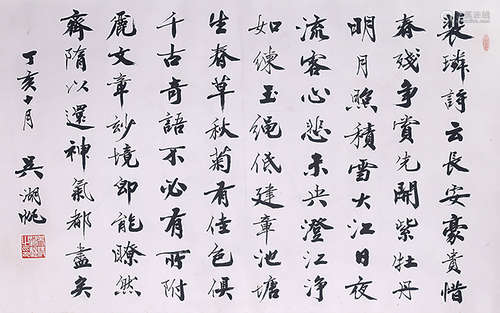 裴璘詩云長安豪貴惜
春殘爭賞先開紫牡丹
明月照積雪大江日夜
流客心悲未央澄江淨
如練玉繩低建章池塘
生春草秋菊有佳色俱
千古奇語不必有所附
麗文章妙境即能瞭然
齊隋以還神氣都盡矣
丁亥十月 吳湖帆